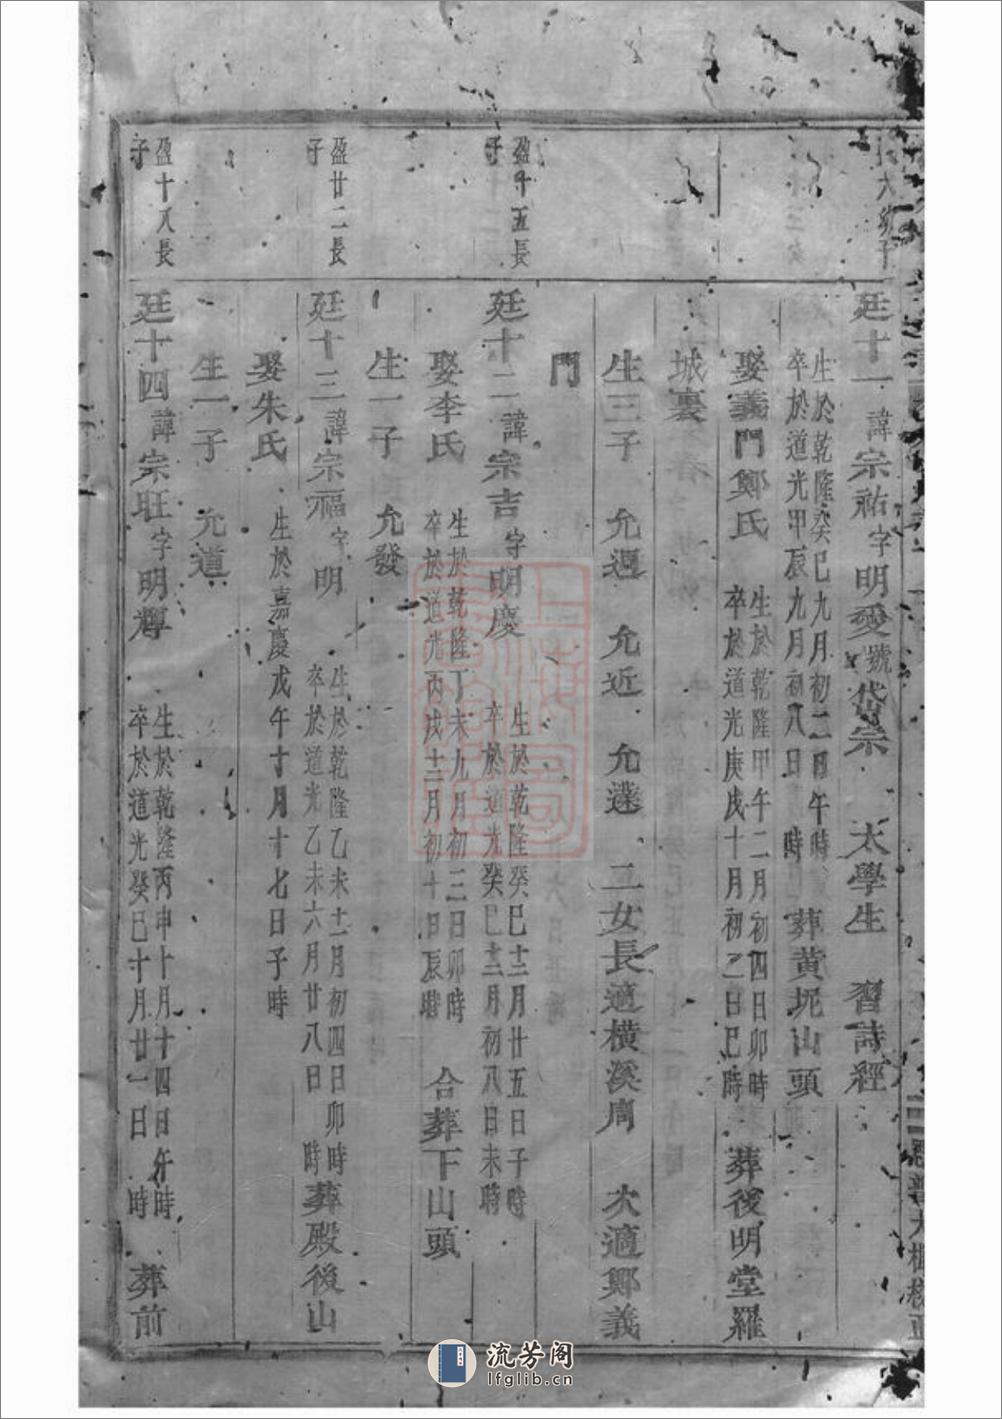 六幼子
廷十一諱宗祐字明愛號岱宗 太學生 習詩經
生於乾隆癸巳九月初二日午時
卒於道光甲辰九月初八日 時
葬黄坭山頭
娶義門鄭氏
生於乾隆甲午二月初四日卯時
卒於道光庚戌十月初二日巳時
葬後明堂羅
城裏
生三子 允週 允近 允達 二女長適橫溪周 次適鄭義
門
盈十五長
子
廷十二諱宗吉字明慶
生於乾隆癸巳十二月廿五日子時
卒於道光癸巳十二月初八日未時
娶李氏
生於乾隆丁未九月初三日卯時
卒於道光丙戌十二月初十日辰時
合葬下山頭
生一子 允發
盈廿二長
子
廷十三諱宗福字明
生於乾隆乙未十一月初四日卯時
卒於道光乙未六月廿八日 時
葬殿後山
娶朱氏
生於嘉慶戊午十月十七日子時
生一子 允道
盈十八長
子
廷十四諱宗旺字明輝
生於乾隆丙申十月十四日午時
卒於道光癸巳十月廿一日 時
葬前
流芳阁
lfglib.cn